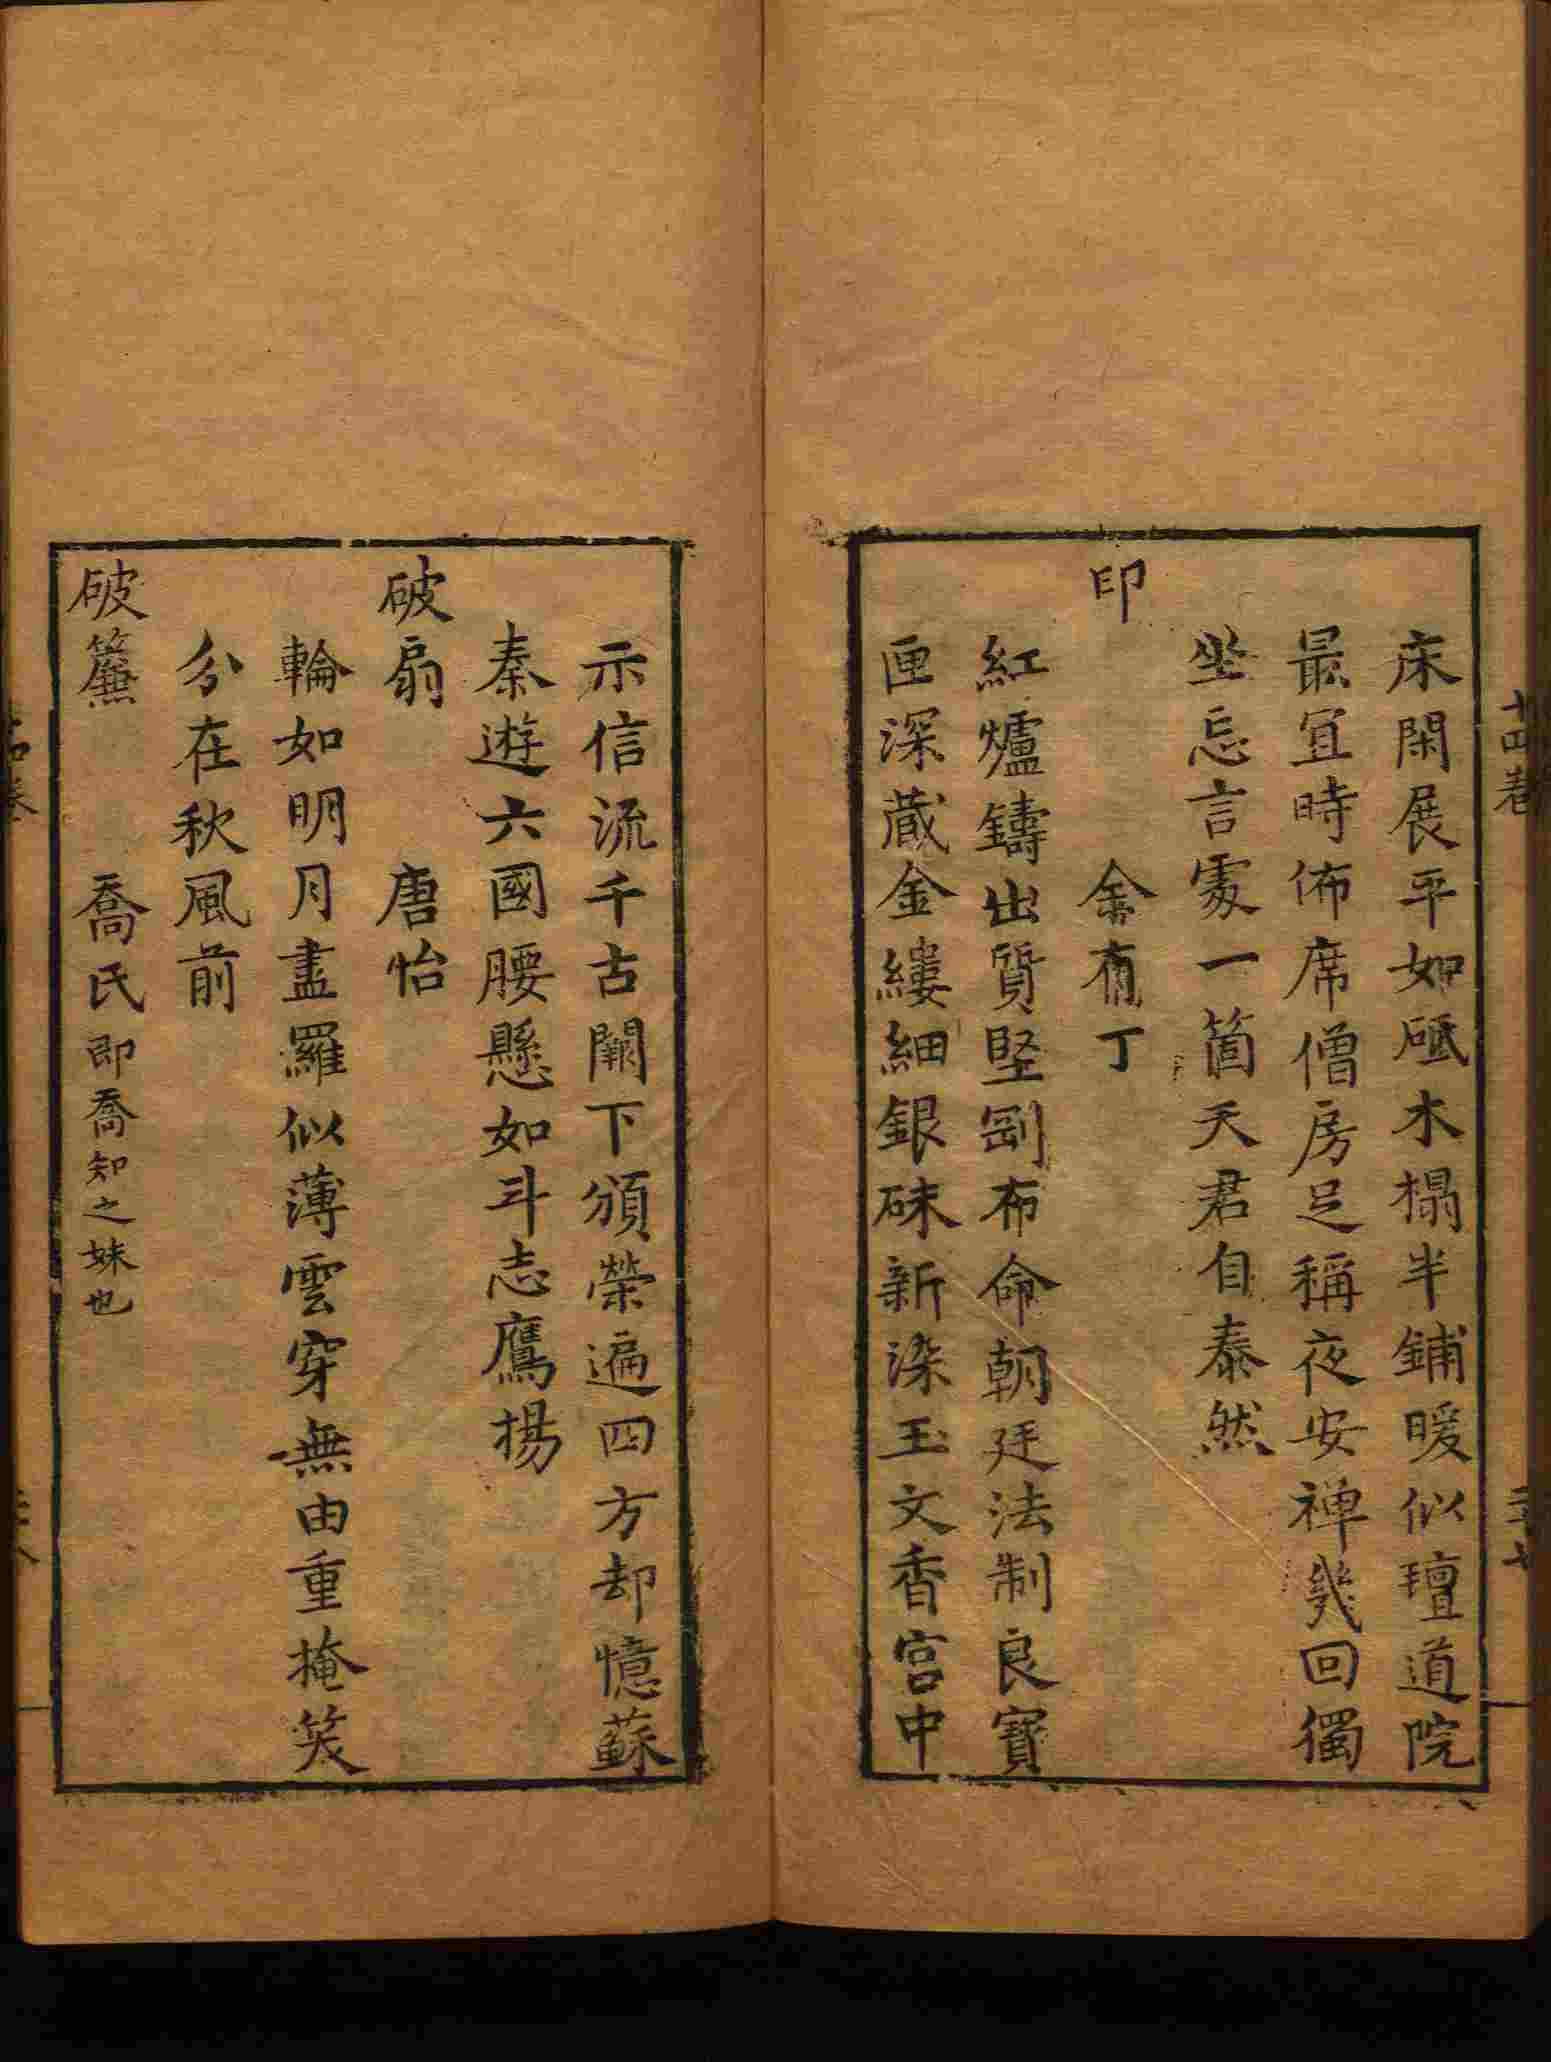 床閑展平如砥木榻半鋪暖似氊道院
最宜時佈席僧房足稱夜安禅幾回獨
坐忘言處一箇天君自泰然
印　金有丁
紅爐鑄出質堅剛布命朝廷法制良寶
匣深蔵金縷細銀硃新染玉文香宮中
示信流千古闕下頒榮遍四方却憶蘇
秦遊六國腰懸如斗志鷹揚
破扇　唐怡
輪如明月盡羅似薄雲穿無由重掩笑
分在秋風前
破簾　喬氏即喬知之妹也